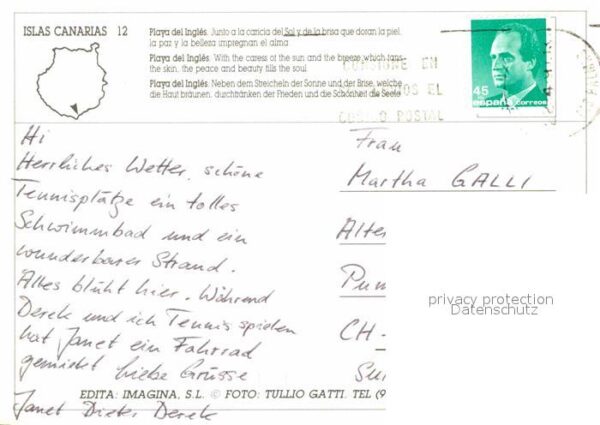 ISLAS CANARIAS 12
Playa del Inglés. Junto a la caricia del Sol y de la brisa que doran la piel,
la paz y la belleza impregnan el alma
Playa del Inglés. With the caress of the sun and the breeze which tans
the skin, the peace and beauty fills the soul
Playa del Inglés. Neben dem Streicheln der Sonne und der Brise, welche
die Haut bräunen, durchtränken der Frieden und die Schönheit die Seele
45
españa correos
EN
EL
POSTAL
Hi
Herrliches Wetter, schöne
Tennisplätze ein tolles
Schwimmbad und ein
wunderbarer Strand.
Alles blüht hier. Während
Derek und ich Tennis spielen
hat Janet ein Fahrrad
gemietet liebe Grüsse
Janet Dieter Derek
Frau
Martha GALLI
Alter
Pum
CH-
Sur
privacy protection
Datenschutz
EDITA: IMAGINA, S.L. © FOTO: TULLIO GATTI. TEL (9